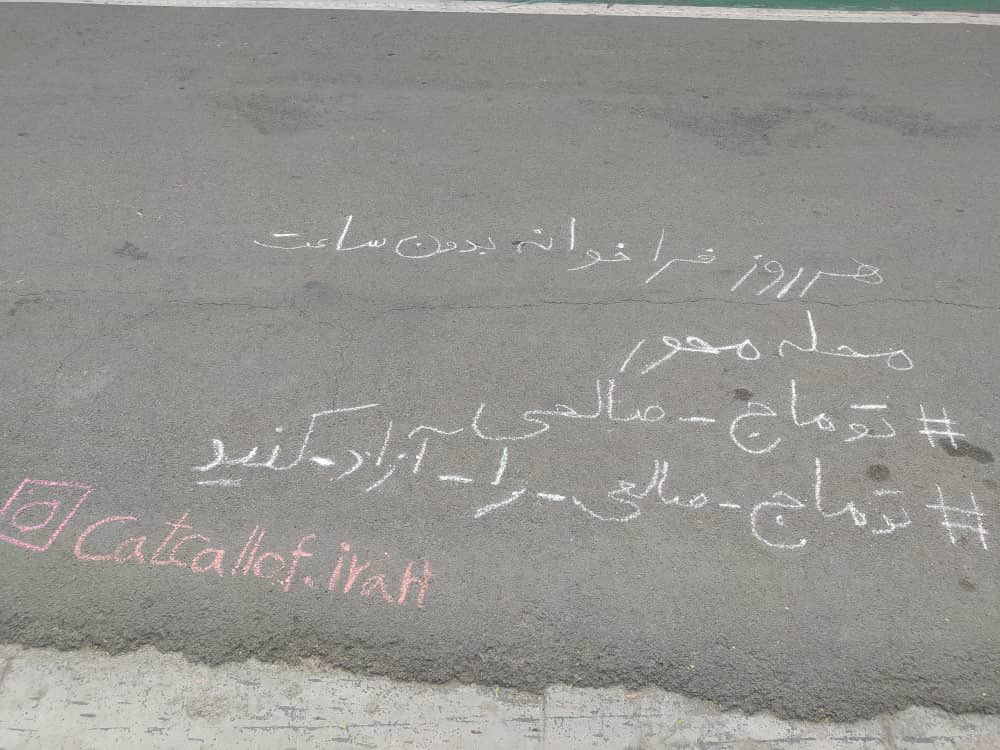 هر روز فراخوانه بدون ساعت
محله محور
#توماج-صالحی
#توماج-صالحی-را-آزاد-کنید
Catcallof.iran